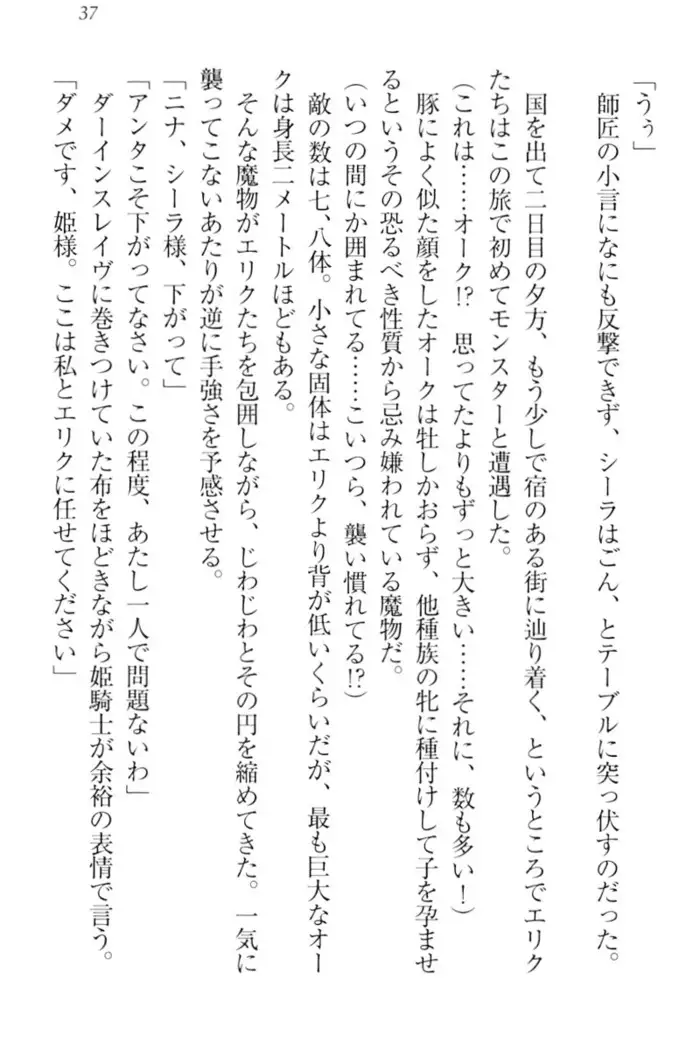 37
「うぅ」
師匠の小言になにも反撃できず、シーラはごん、とテーブルに突っ伏すのだった。
国を出て二日目の夕方、もう少しで宿のある街に辿り着く、というところでエリク
たちはこの旅で初めてモンスターと遭遇した。
(これは……オーク!?　思ってたよりもずっと大きい……それに、数も多い！)
豚によく似た顔をしたオークは牡しかおらず、他種族の牝に種付けして子を孕ませ
るというその恐るべき性質から忌み嫌われている魔物だ。
(いつの間にか囲まれてる……こいつら、襲い慣れてる!?)
敵の数は七、八体。小さな固体はエリクより背が低いくらいだが、最も巨大なオー
クは身長二メートルほどもある。
そんな魔物がエリクたちを包囲しながら、じわじわとその円を縮めてきた。一気に
襲ってこないあたりが逆に手強さを予感させる。
「ニナ、シーラ様、下がって」
「アンタこそ下がってなさい。この程度、あたし一人で問題ないわ」
ダーインスレイヴに巻きつけていた布をほどきながら姫騎士が余裕の表情で言う。
「ダメです、姫様。ここは私とエリクに任せてください」